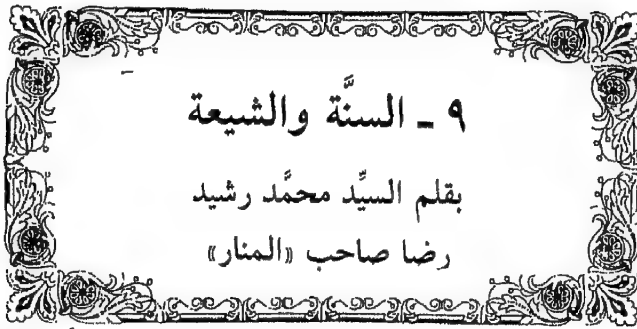 ٩ ـ السنَّة والشيعة
بقلم السيِّد محمَّد رشيد
رضا صاحب «المنار»